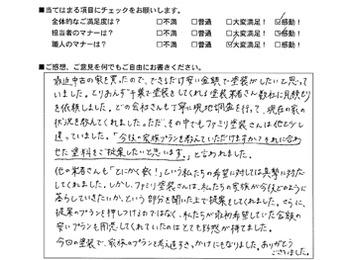 ■当てはまる項目にチェックをお願いします。
全体的なご満足度は? □不満 □普通 □大変満足! ☑感動!
担当者のマナーは? □不満 □普通 □大変満足! ☑感動!
職人のマナーは? □不満 □普通 ☑大変満足! □感動!
■ご感想、ご意見を何でもご自由にお書きください。
最近中古の家を買ったので、できるだけ安い金額で塗装がしたいと思って
いました。とりあえず千葉で塗装をしてくれる塗装業者さん数社に見積り
を依頼しました。どの会社さんも丁寧に現地調査を行って、現在の家の
状況を教えてくれました。ただ、その中でもファミリ塗装さんは他と少し
違っていました。「今後の家族プランを教えていただけますか?それに合わ
せた塗料をご提案したいと思います。」と言われました。
他の業者さんも「とにかく安く!」という私たちの希望に対しては真摯に対応
してくれました。しかし、ファミリ塗装さんは、私たちの家族が今後どのように
暮らしていきたいか、という部分を聞いた上で提案をしてくれました。さらに、
提案のプランを押しつけるのではなく、私たちが最初希望していた金額の
安いプランも用意してくれていたのはとても好感が持てました。
今回の塗装で、家族のプランも考え直すきっかけにもなりました。ありがとう
ございました。